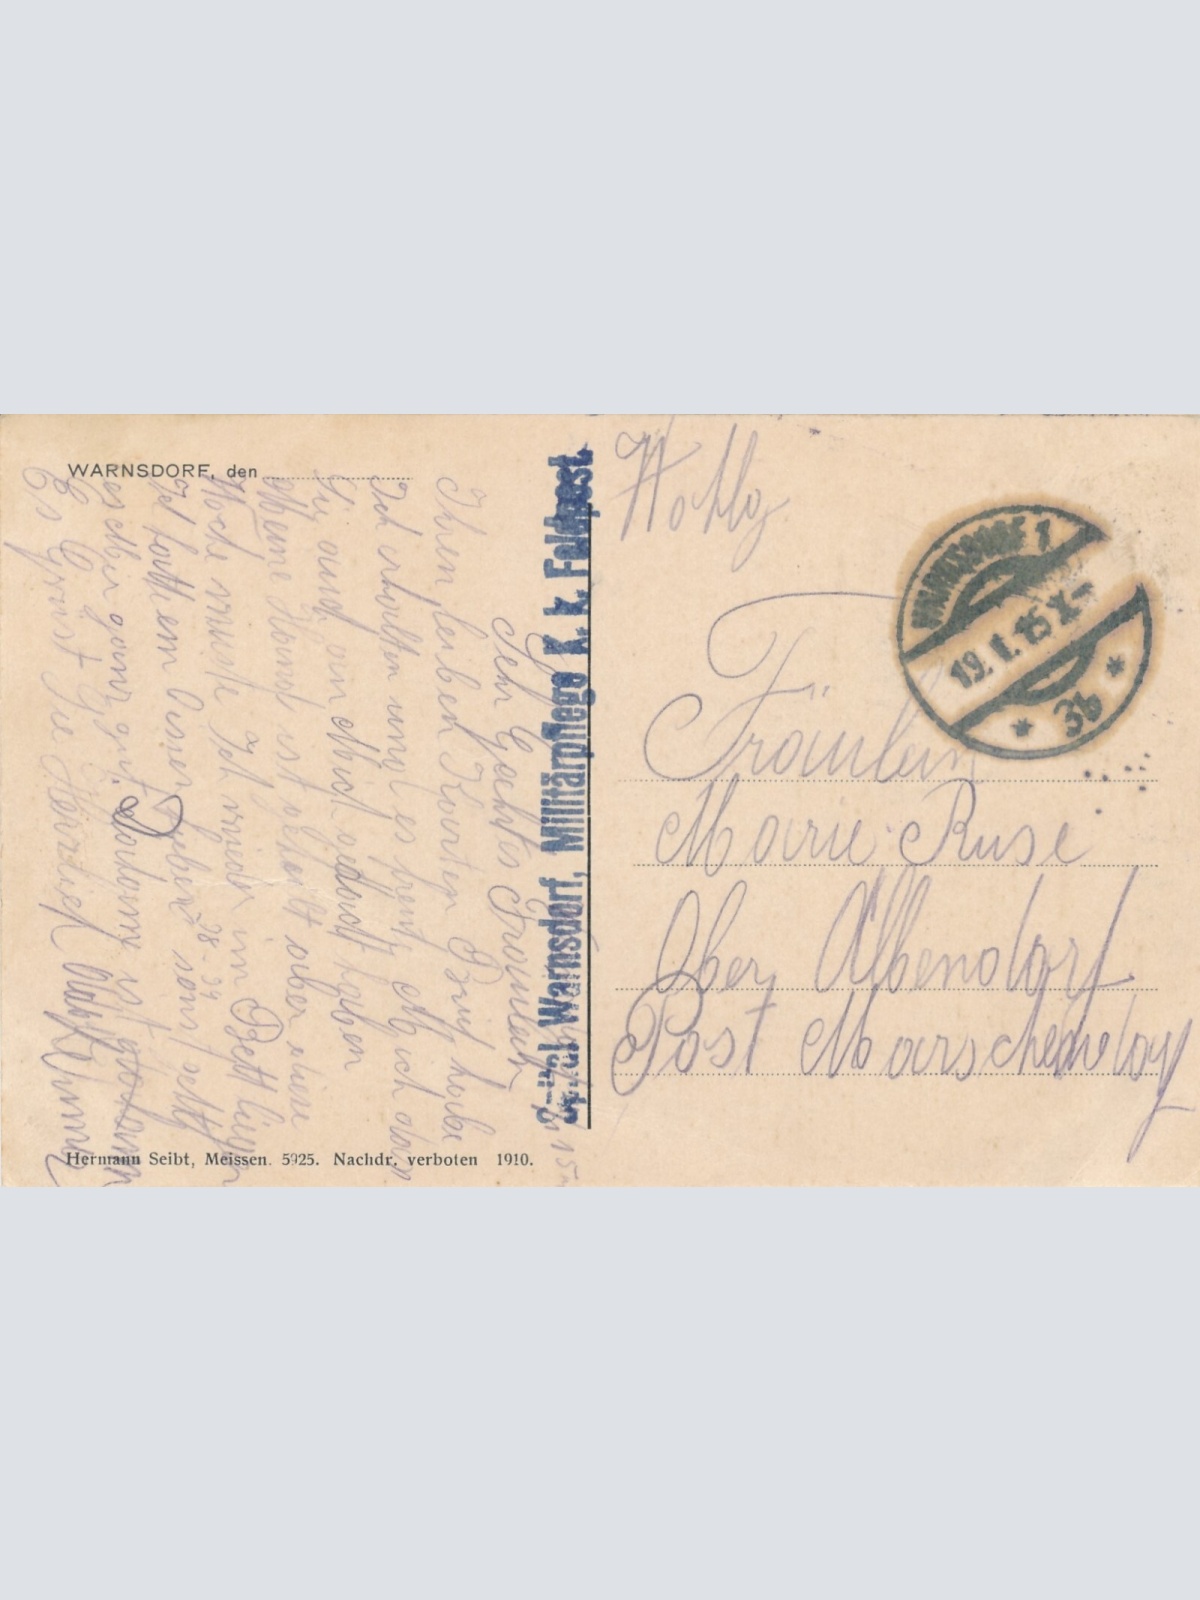 WARNSDORF, den
Sehr Geehrtes Fräulein
Ihren lieben Karten Brief habe
Ich erhalten und es freut Mich das
Sie auch an Mich gedacht haben
Meine Hand ist geheilt aber diese
Woche muste Ich wieder im Bett liegen
Ich hatte ein bisser Fieber 38-39 sonst geht
es Mir ganz gut
Es Grüst Sie Herzlich Adolf
Spital Warnsdorf, Militärpflege K. k. Feldpost.
Hermann Seibt, Meissen. 5925. Nachdr. verboten 1910.
Wohlg
WARNSDORF 1
19. I. 15 X-
* 3b *
Fräulein
Marie Ruse
Ober Albendorf
Post Marschendorf